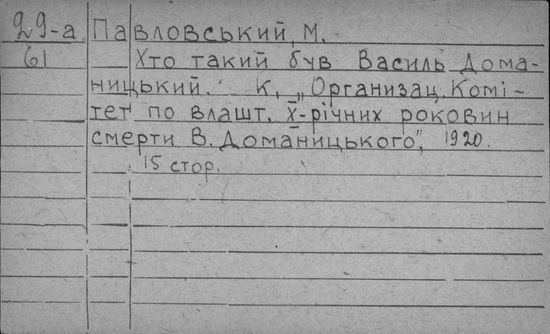 29-а Павловський, М.
61 Хто такий був Василь Дома-
ницький. К, „Организац. Комі-
тет по влашт. X-річних роковин
смерти В. Доманицького", 1920.
15 стор.